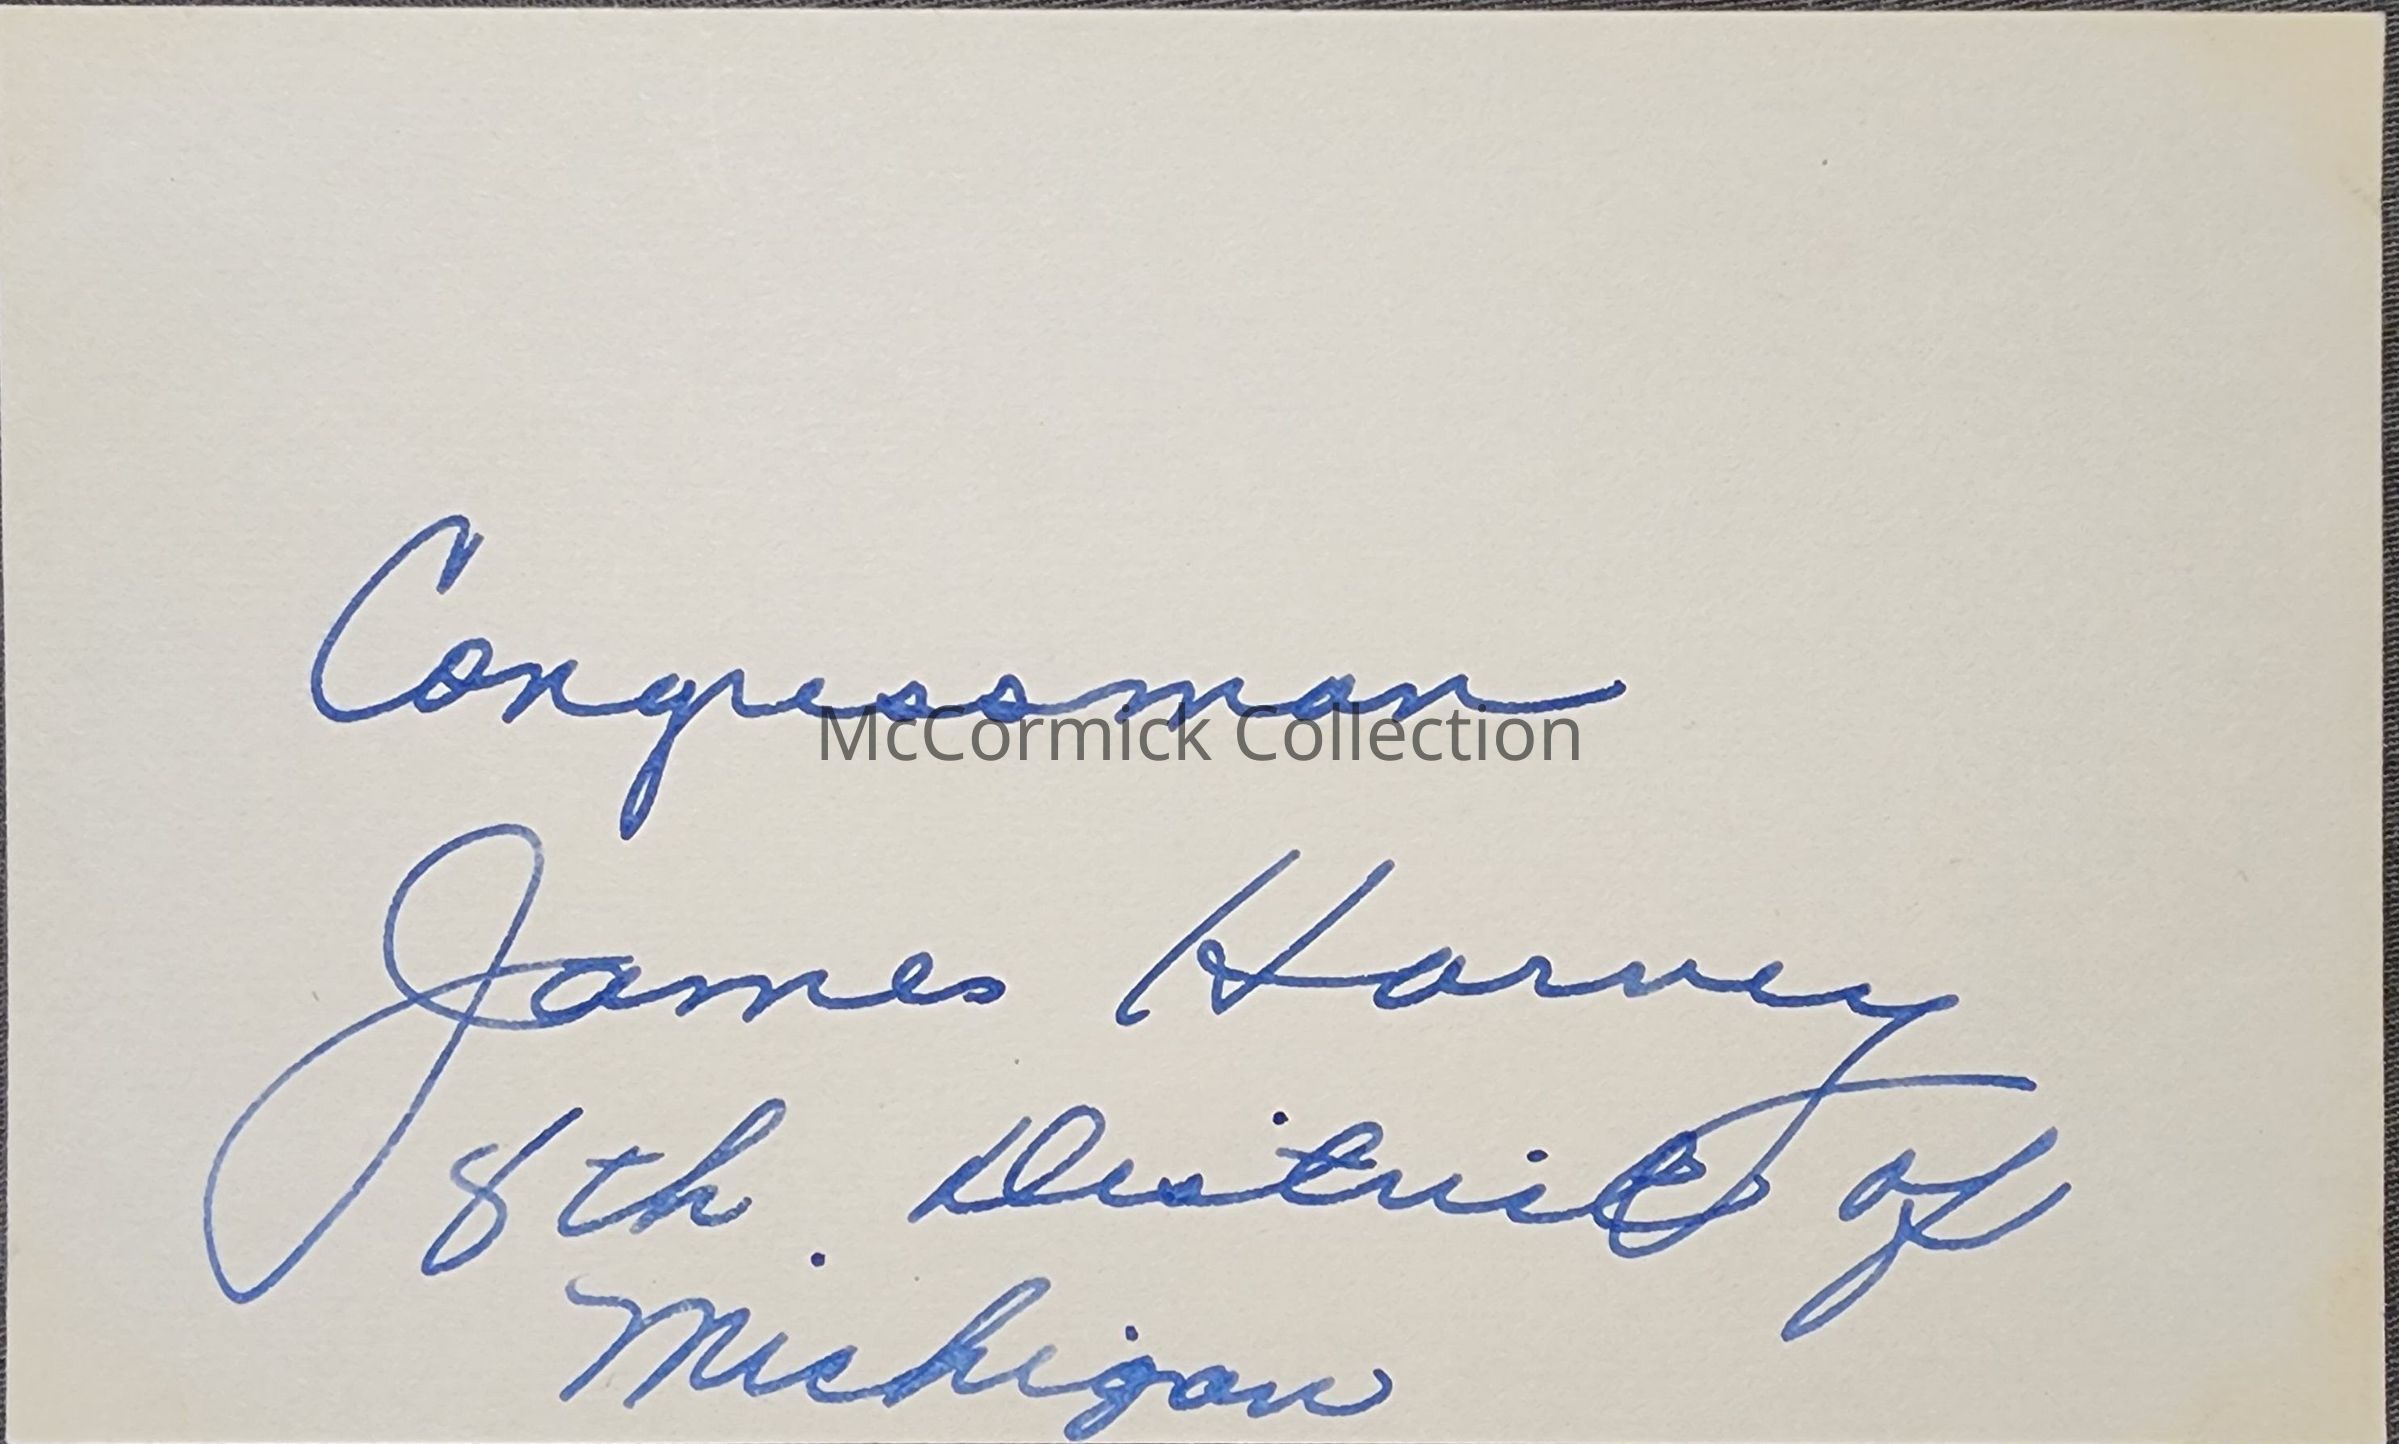 Congressman
McCormick Collection
James Harvey
8th District of
Michigan